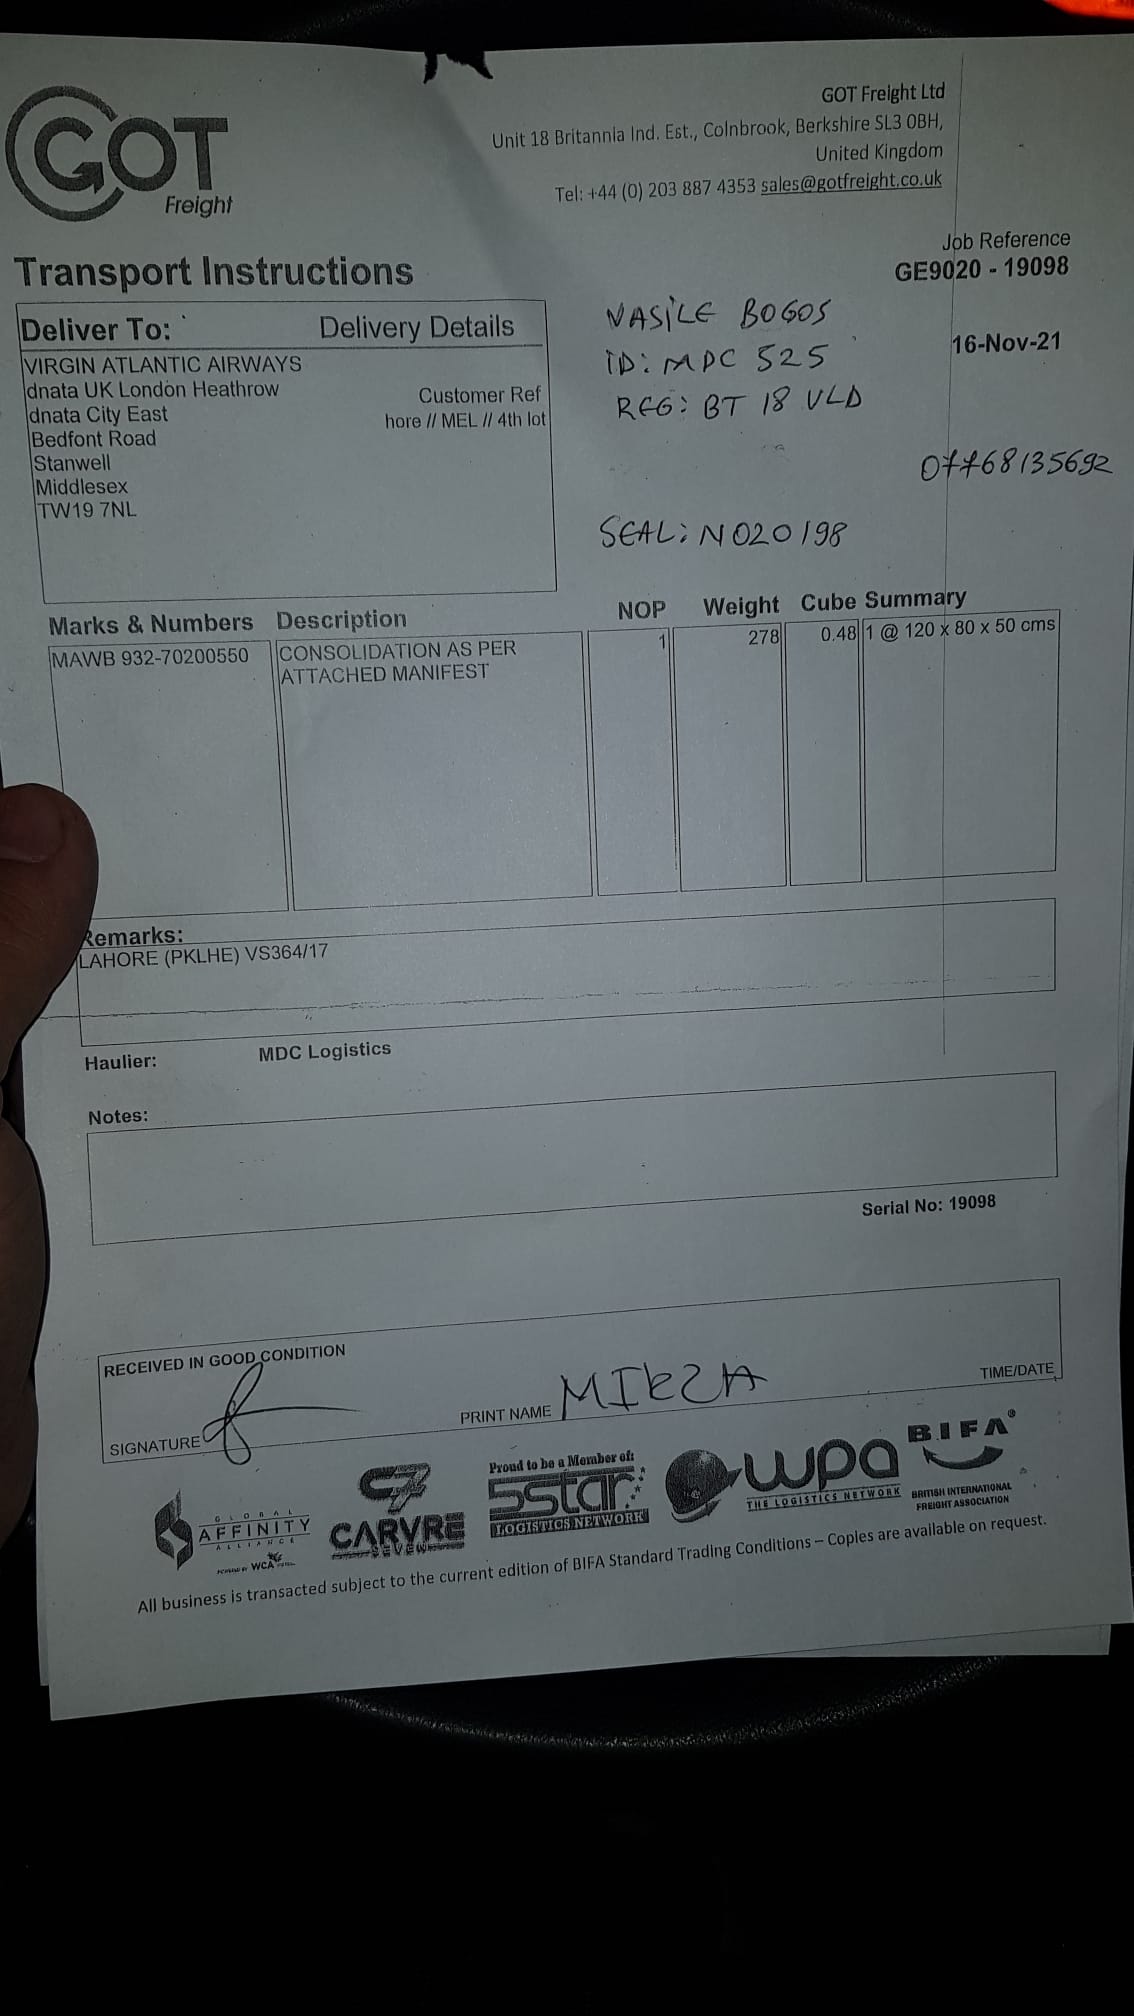 GOT
Freight
GOT Freight Ltd
Unit 18 Britannia Ind. Est., Colnbrook, Berkshire SL3 0BH,
United Kingdom
Tel: +44 (0) 203 887 4353 sales@gotfreight.co.uk
Job Reference
GE9020 - 19098
16-Nov-21
Transport Instructions
Deliver To: Delivery Details
VIRGIN ATLANTIC AIRWAYS
dnata UK London Heathrow
dnata City East
Bedfont Road
Stanwell
Middlesex
TW19 7NL
Customer Ref
hore // MEL // 4th lot
VASILE BOGOS
ID: MDC 525
REG: BT 18 VLD
07768135692
SEAL: N020198
Marks & Numbers Description NOP Weight Cube Summary
MAWB 932-70200550 CONSOLIDATION AS PER 1 278 0.48 1 @ 120 x 80 x 50 cms
ATTACHED MANIFEST
Remarks:
LAHORE (PKLHE) VS364/17
Haulier: MDC Logistics
Notes:
Serial No: 19098
RECEIVED IN GOOD CONDITION
SIGNATURE PRINT NAME MIRZA TIME/DATE
GLOBAL
AFFINITY
ALLIANCE
POWERED BY WCA
C7
CARVRE
SEVEN
Proud to be a Member of:
5star
LOGISTICS NETWORK
wpa
THE LOGISTICS NETWORK
BIFA®
BRITISH INTERNATIONAL
FREIGHT ASSOCIATION
All business is transacted subject to the current edition of BIFA Standard Trading Conditions – Copies are available on request.